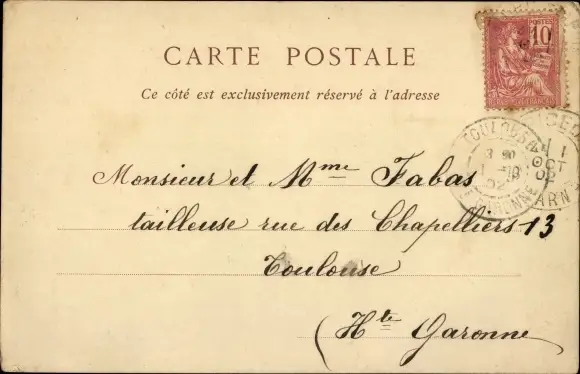 CARTE POSTALE
Ce côté est exclusivement réservé à l'adresse
POSTES
10
TOULOUSE
3 30
1 -10
02
GARONNE
1
OCT
02
Monsieur et Mme Fabas
tailleuse rue des Chapelliers 13
Toulouse
(Hte Garonne